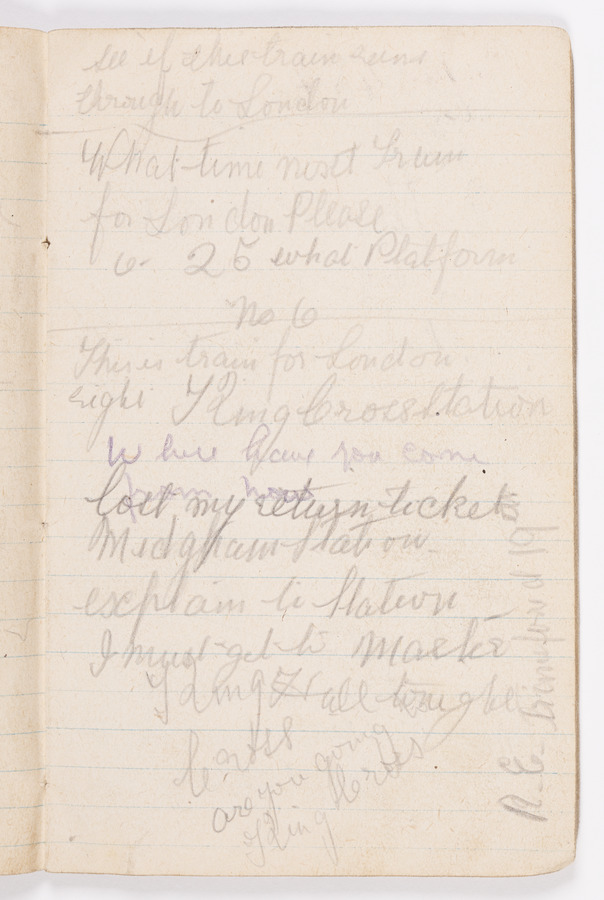 see if this train runs
through to London
What time next Train
for London Please
6. 25 what Platform
No 6
This is train for London
right Kings Cross Station
Where have you come
from
Lost my return ticket
Midgham Station
explain to Station
I must get to Master
King Hall tonight
Cross
are you going
King Cross
R. E.